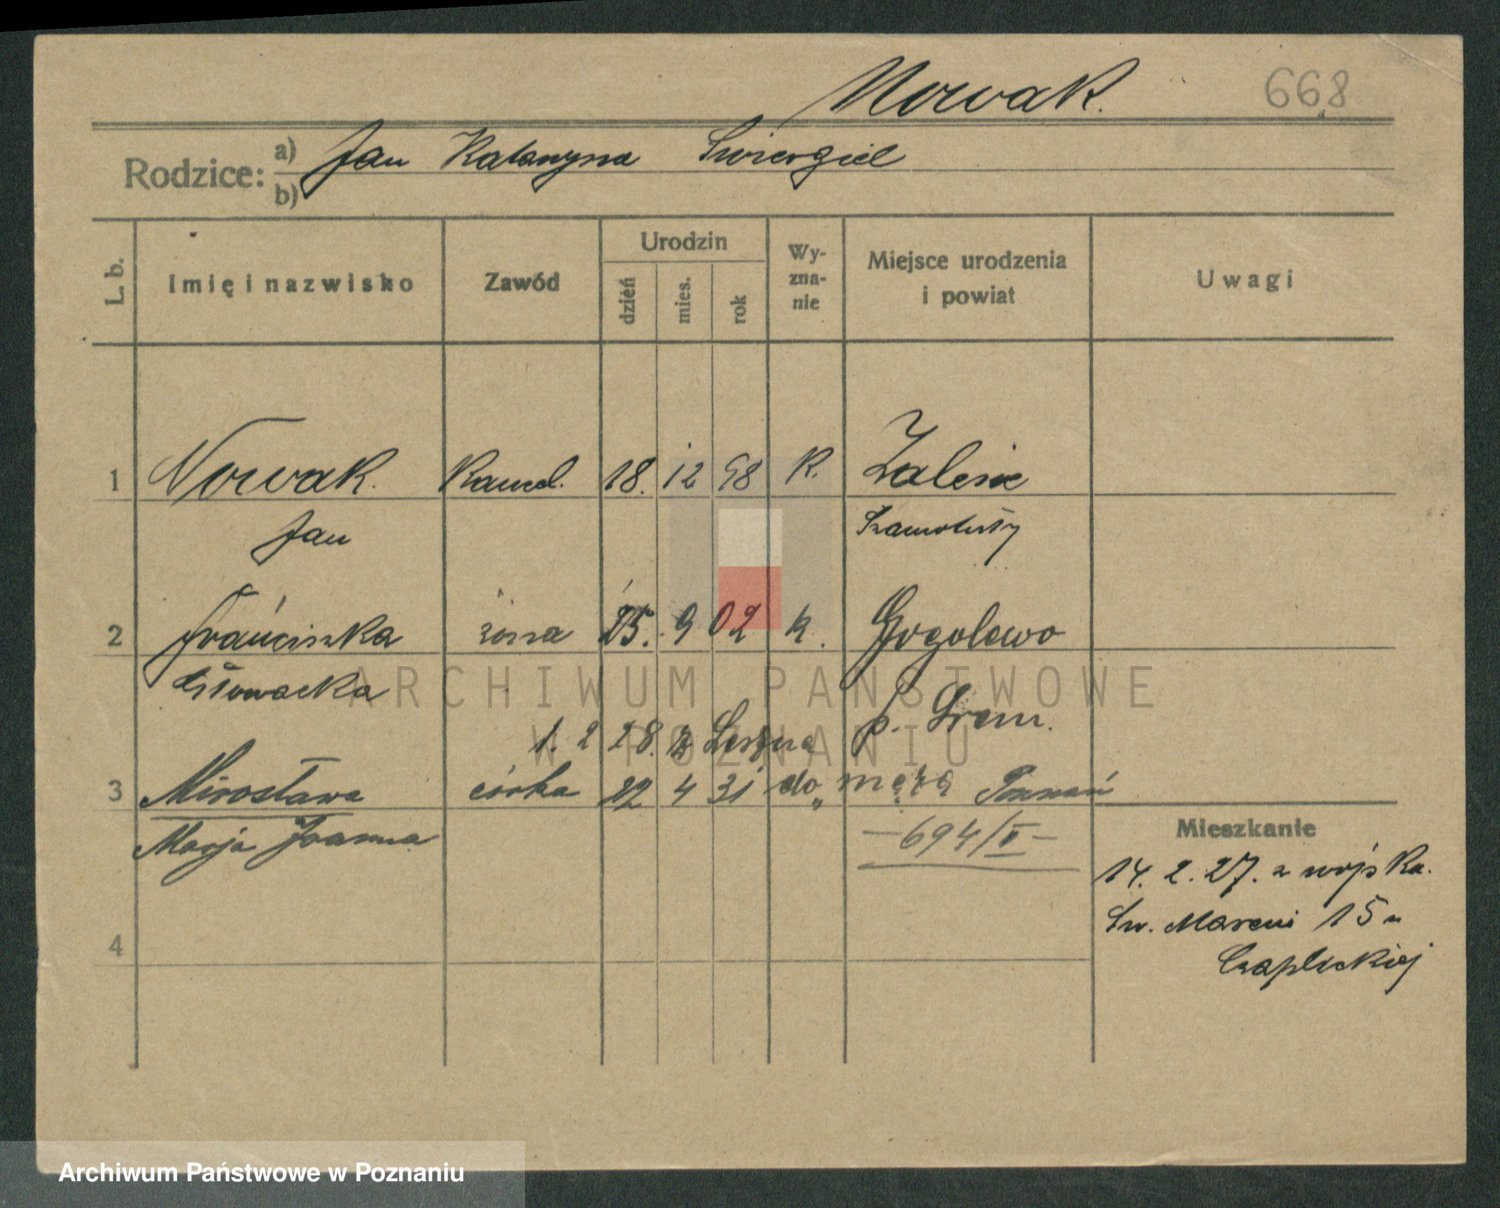 Nowak. 668
Rodzice: a) Jan Katarzyna Świergiel
b)
L. b. Imię i nazwisko Zawód Urodzin dzień mies. rok Wyznanie Miejsce urodzenia i powiat Uwagi
1 Nowak. 18. 12 98 K. Zalesie
Jan Szamotuły
2 Franciszka żona 25. 9 02 k. Gogolewo
p. Śrem.
ARCHIWUM PAŃSTWOWE
W POZNANIU
1. 2 28. z Leszna do męża
3 Mirosława córka 22 4 31 " Poznań
Marja Joanna — 694/II —
Mieszkanie
14. 2. 27. z wojska.
Św. Marcin 15 u
Czaplickiej
4
Archiwum Państwowe w Poznaniu